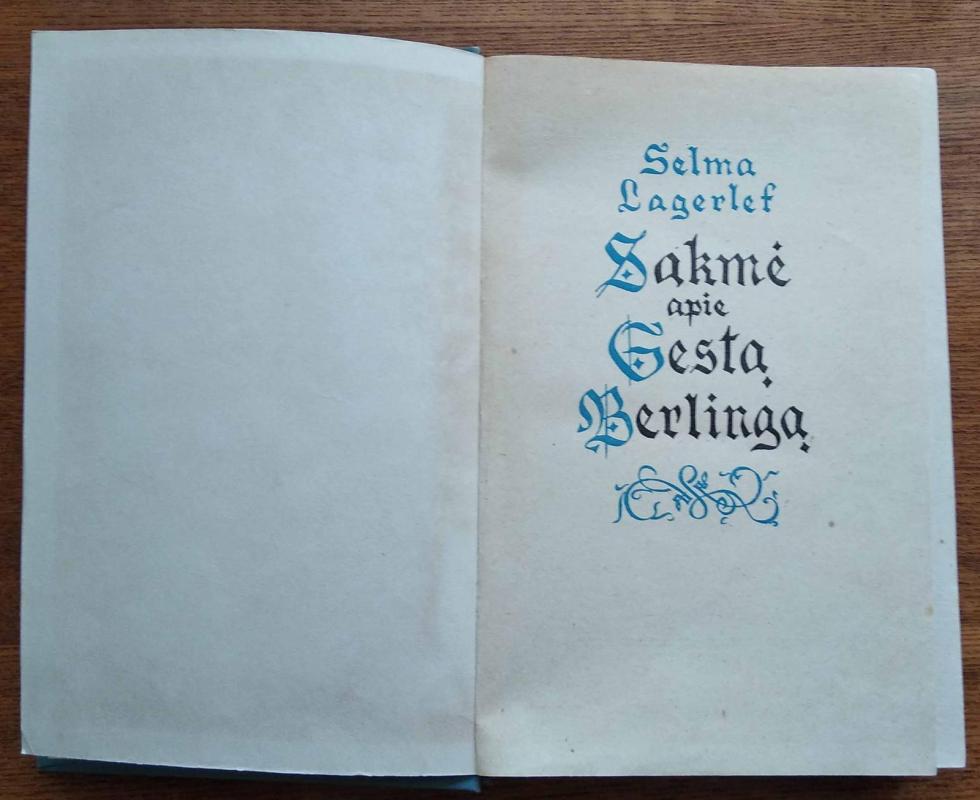 Selma
Lagerlef
Sakmė
apie
Gestą
Berlingą